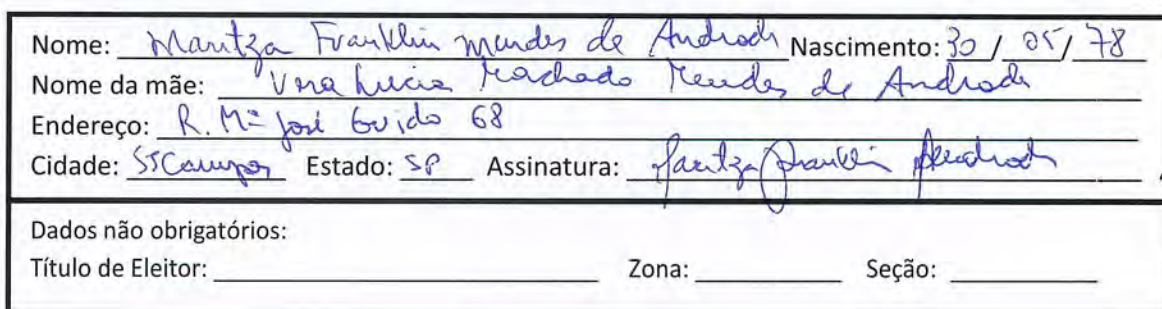 Nome: Maritza Franklin Mendes de Andrade Nascimento: 30 / 05 / 78
Nome da mãe: Vera Lucia Machado Mendes de Andrade
Endereço: R. Mª José Guido 68
Cidade: SJCampos Estado: SP Assinatura: Maritza Franklin Andrade
Dados não obrigatórios:
Título de Eleitor: Zona: Seção: